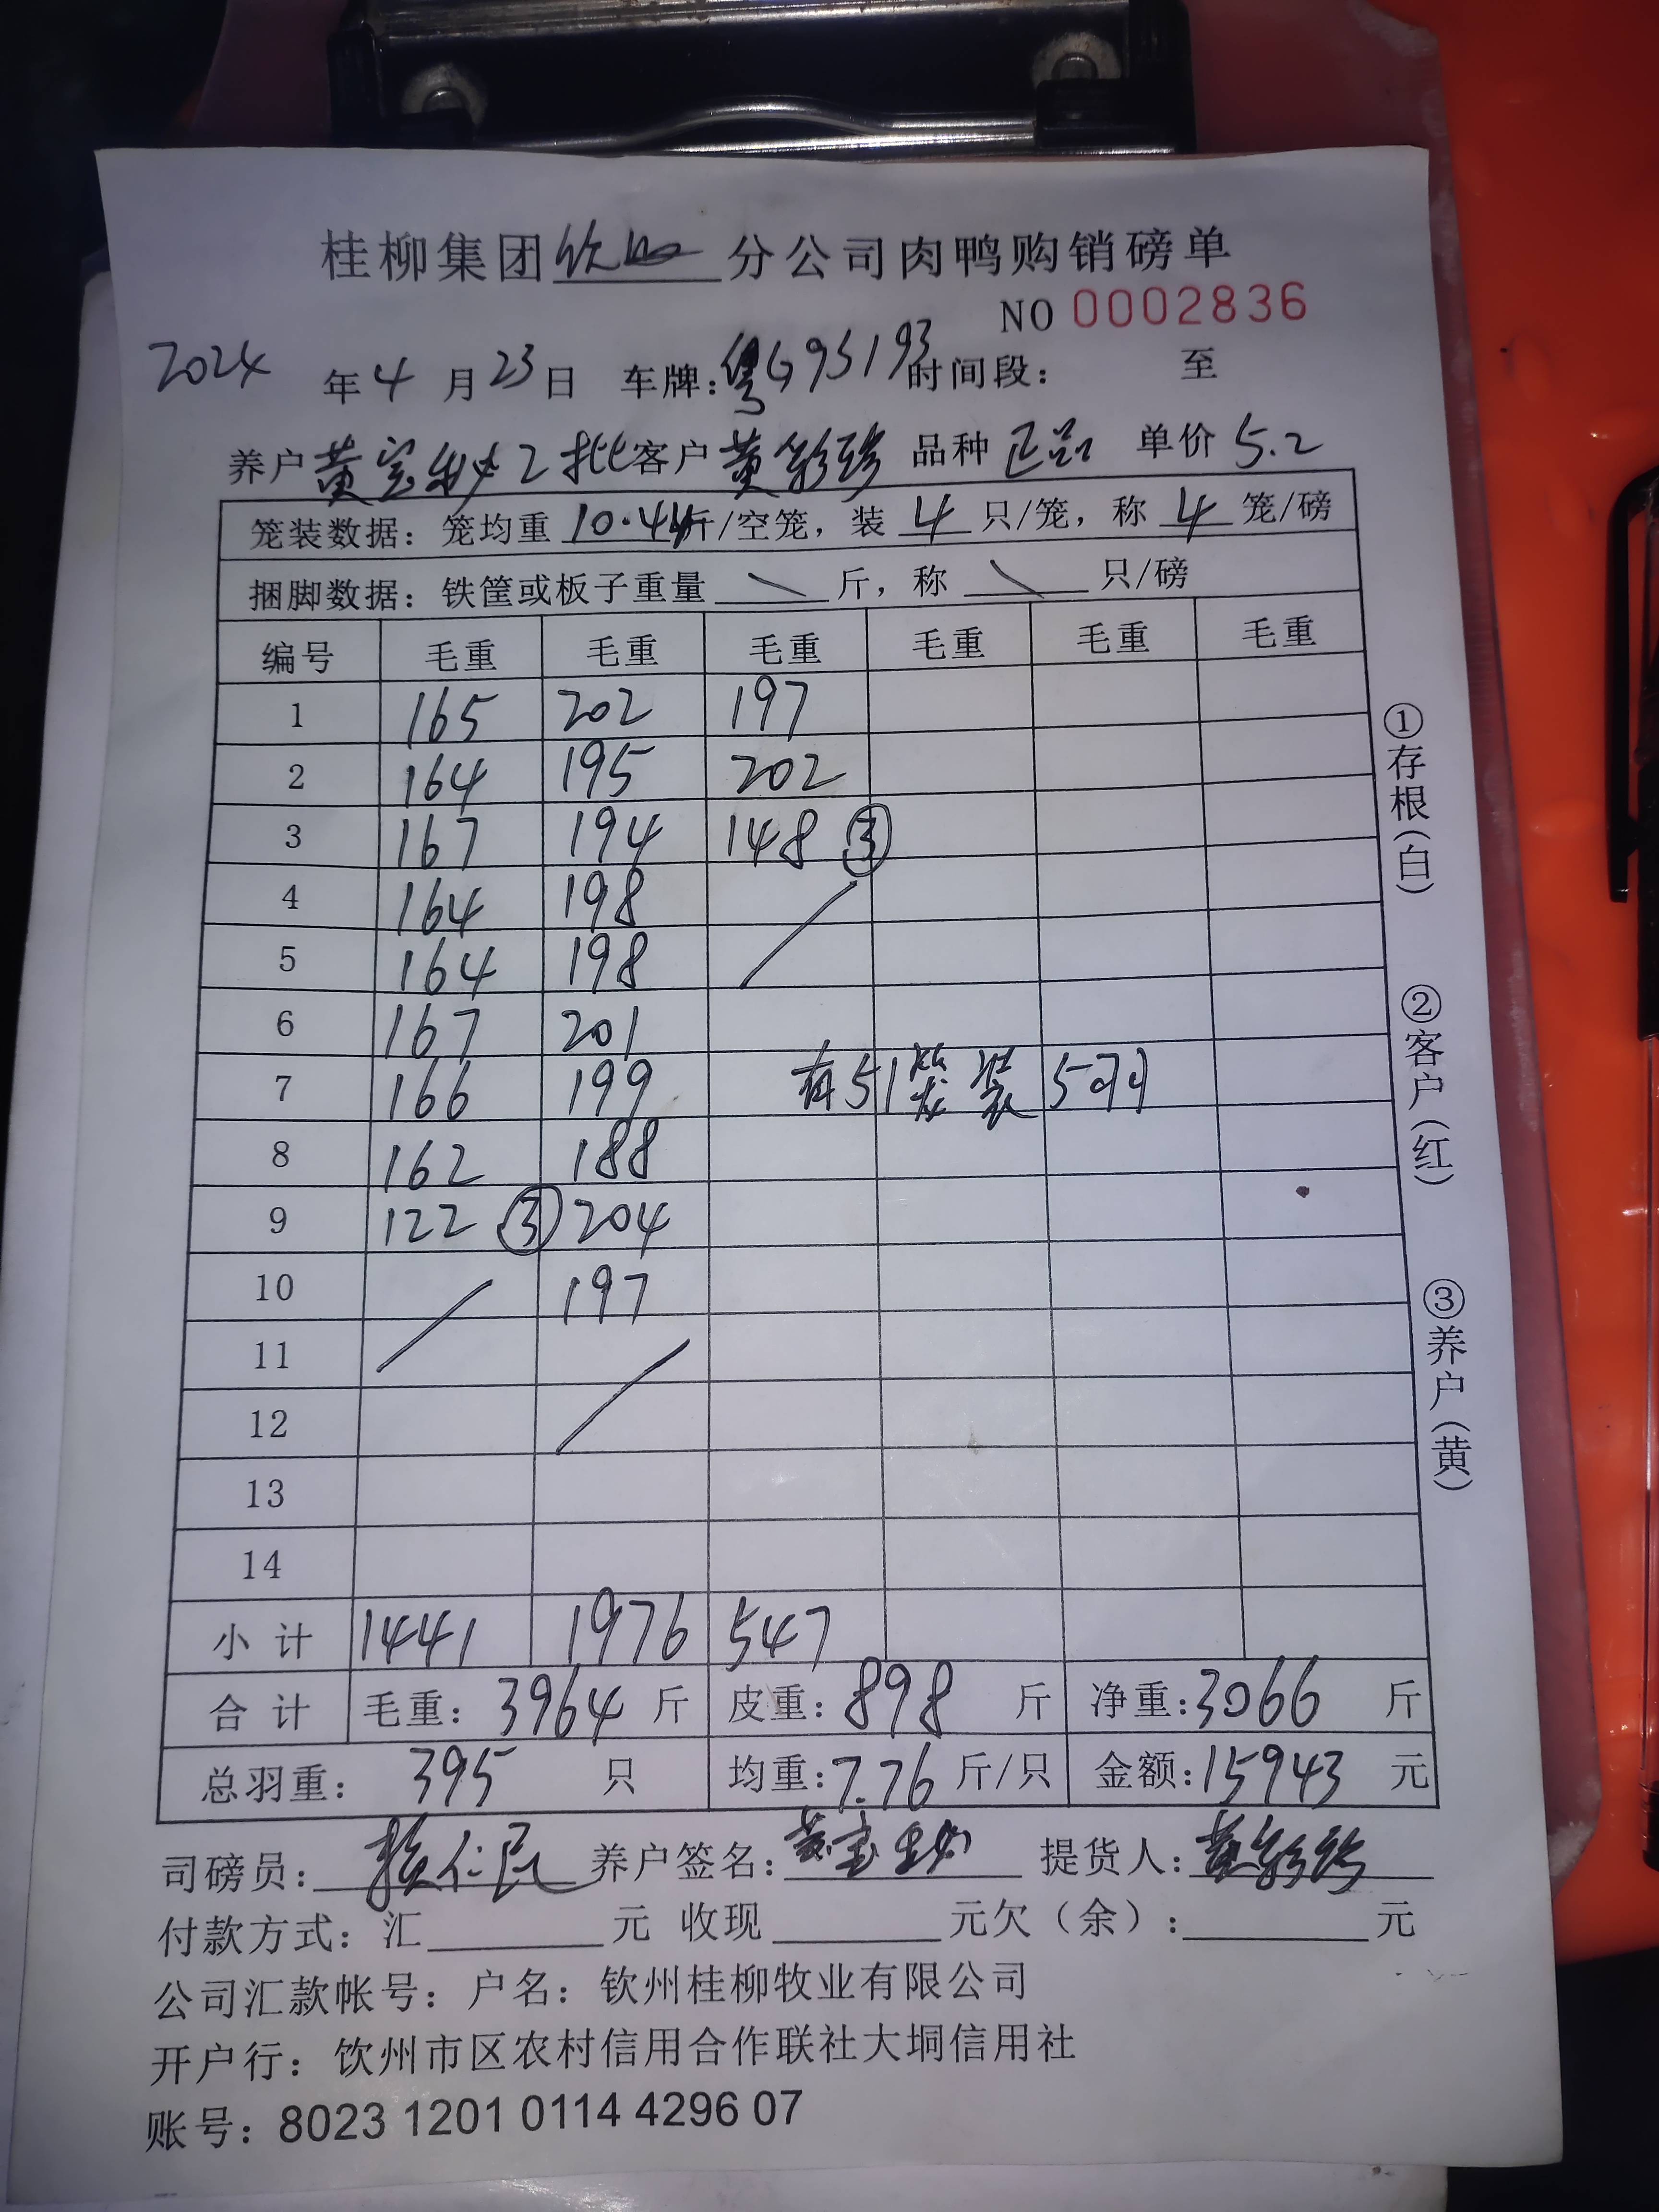 桂柳集团钦州分公司肉鸭购销磅单
NO 0002836
2024 年 4 月 23 日 车牌:粤G95193 时间段: 至
养户 黄宝 2批 客户 黄彩珍 品种 正品 单价 5.2
笼装数据: 笼均重 10.44 斤/空笼, 装 4 只/笼, 称 4 笼/磅
捆脚数据: 铁筐或板子重量 \ 斤, 称 \ 只/磅
编号 毛重 毛重 毛重 毛重 毛重 毛重
1 165 202 197
2 164 195 202
3 167 194 148 ③
4 164 198
5 164 198
6 167 201
7 166 199 有51笼装5羽
8 162 188
9 122 ③ 204
10 197
11
12
13
14
小计 1441 1976 547
合计 毛重: 3964 斤 皮重: 898 斤 净重: 3066 斤
总羽重: 395 只 均重: 7.76 斤/只 金额: 15943 元
司磅员: 仁民 养户签名: 黄宝 提货人: 黄彩珍
付款方式: 汇 元 收现 元欠(余): 元
公司汇款帐号: 户名: 钦州桂柳牧业有限公司
开户行: 钦州市区农村信用合作联社大垌信用社
账号: 8023 1201 0114 4296 07
①存根(白)
②客户(红)
③养户(黄)